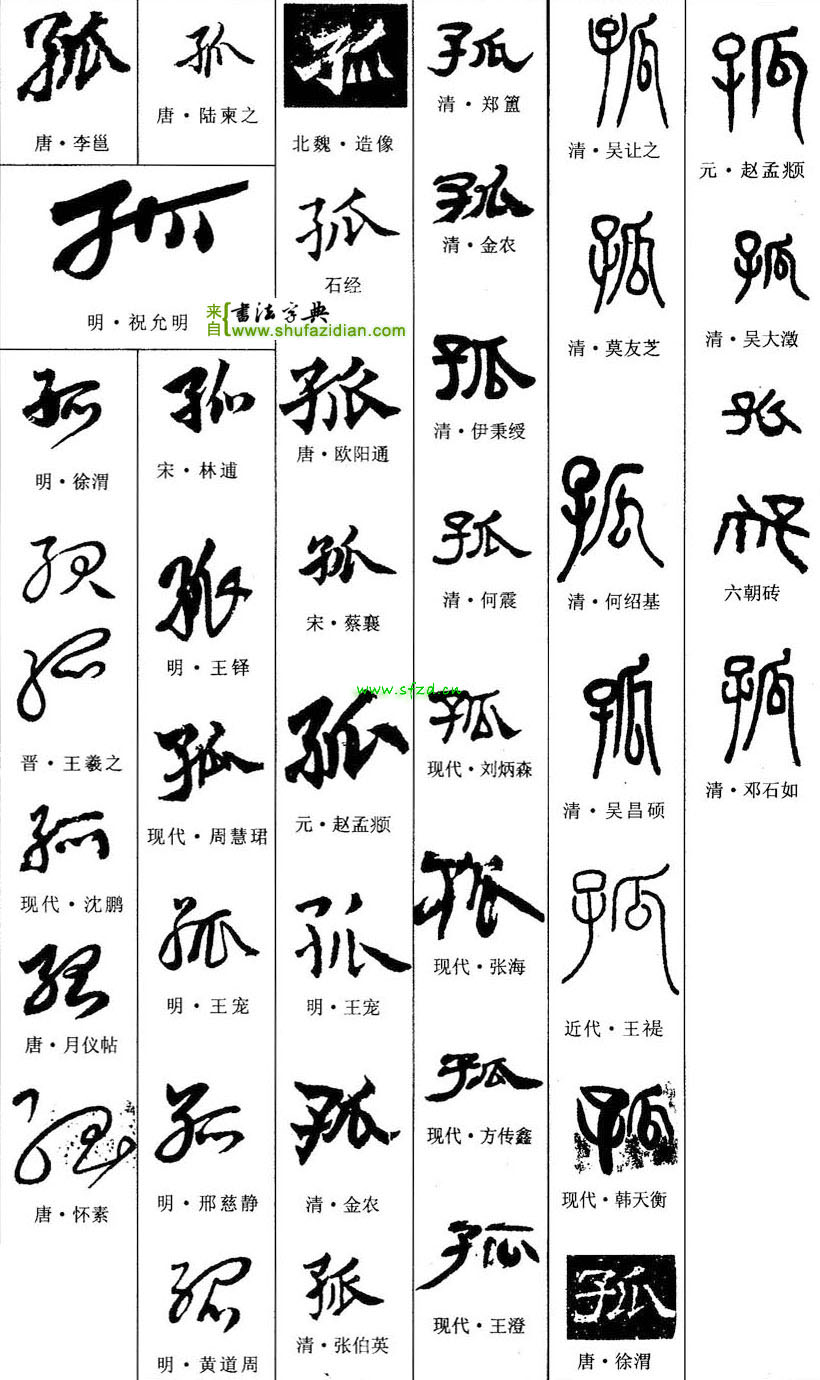 孤
唐·李邕
孤
唐·陆柬之
孤
明·祝允明
来自{書法字典
www.shufazidian.com
孤
明·徐渭
孤
孤
晋·王羲之
孤
现代·沈鹏
孤
唐·月仪帖
孤
唐·怀素
孤
宋·林逋
孤
明·王铎
孤
现代·周慧珺
孤
明·王宠
孤
明·邢慈静
孤
明·黄道周
孤
北魏·造像
孤
石经
孤
唐·欧阳通
孤
宋·蔡襄
www.sfzd.cn
孤
元·赵孟頫
孤
明·王宠
孤
清·金农
孤
清·张伯英
孤
清·郑簠
孤
清·金农
孤
清·伊秉绶
孤
清·何震
孤
现代·刘炳森
孤
现代·张海
孤
现代·方传鑫
孤
现代·王澄
孤
清·吴让之
孤
清·莫友芝
孤
清·何绍基
孤
清·吴昌硕
孤
近代·王禔
孤
现代·韩天衡
孤
唐·徐渭
孤
元·赵孟頫
孤
清·吴大澂
孤
孤
六朝砖
孤
清·邓石如